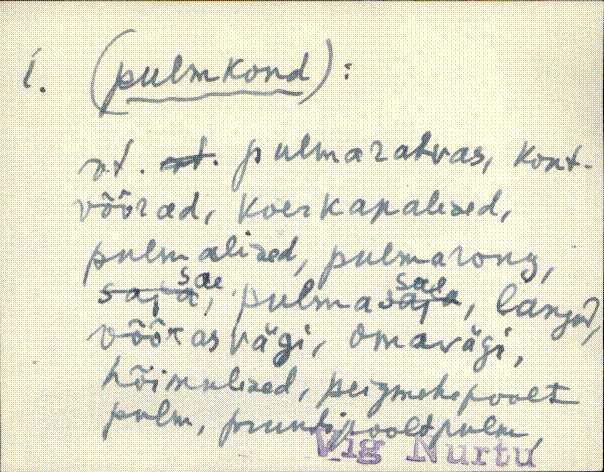 i. (pulmkond):
vt. vt. pulmarahvas, kont-
võõrad, koerkapalised,
pulmalised, pulmarong,
saja sae, pulmasaja sae, langud,
võõrasvägi, omavägi,
hõimulised, peigmehepoolt
pulm, pruudipooltpulm,
Vig Nurtu